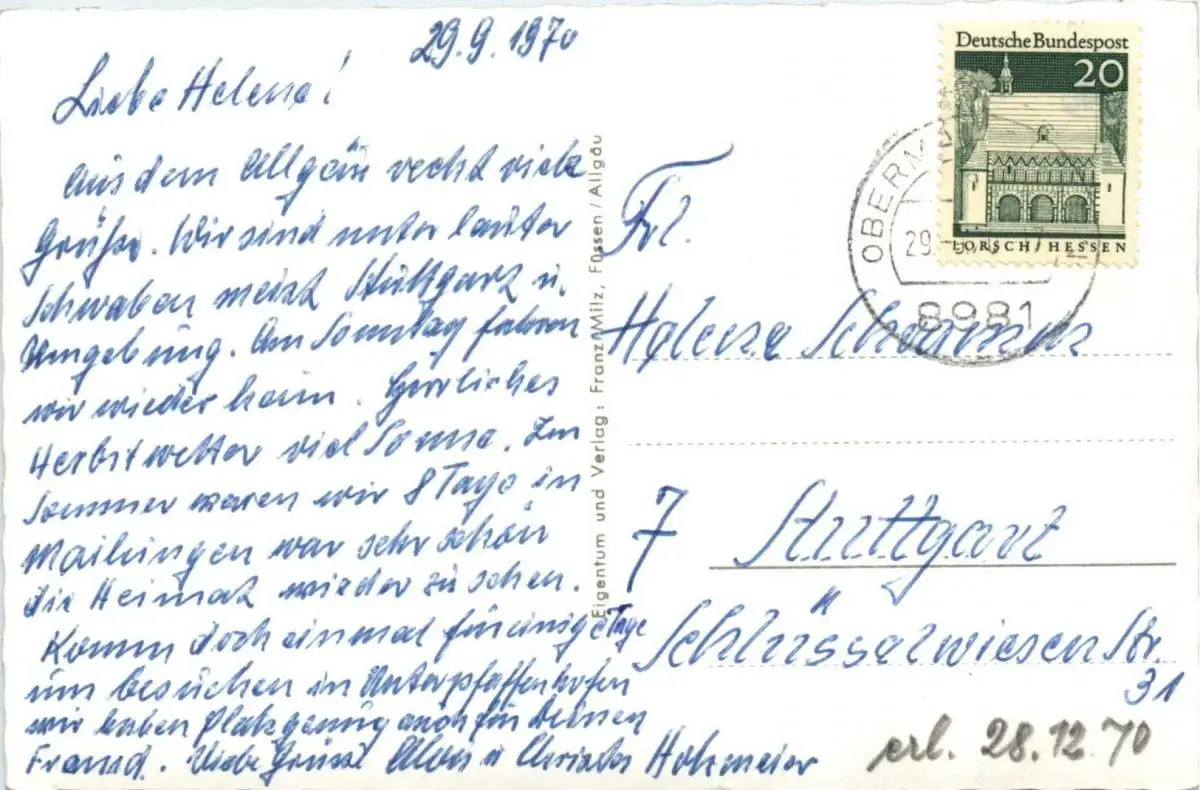 29.9.1970
Liebe Helene!
Aus dem Allgäu recht viele
Grüße. Wir sind unter lauter
Schwaben meist Stuttgart u.
Umgebung. Am Sonntag fahren
wir wieder heim. Herrliches
Herbstwetter viel Sonne. Im
Sommer waren wir 8 Tage in
Maihingen war sehr schön
die Heimat wieder zu sehen.
Komm doch einmal für einige Tage
uns besuchen in Unterpfaffenhofen
wir haben Platz genug auch für Deinen
Freund. Viele Grüße Alois u Christa
Eigentum und Verlag: Franz Milz, Füssen/Allgäu
Deutsche Bundespost
20
LORSCH/HESSEN
8981
Frl.
Helene
7 Stuttgart
Schlüsselwiesen Str.
31
erl. 28.12.70